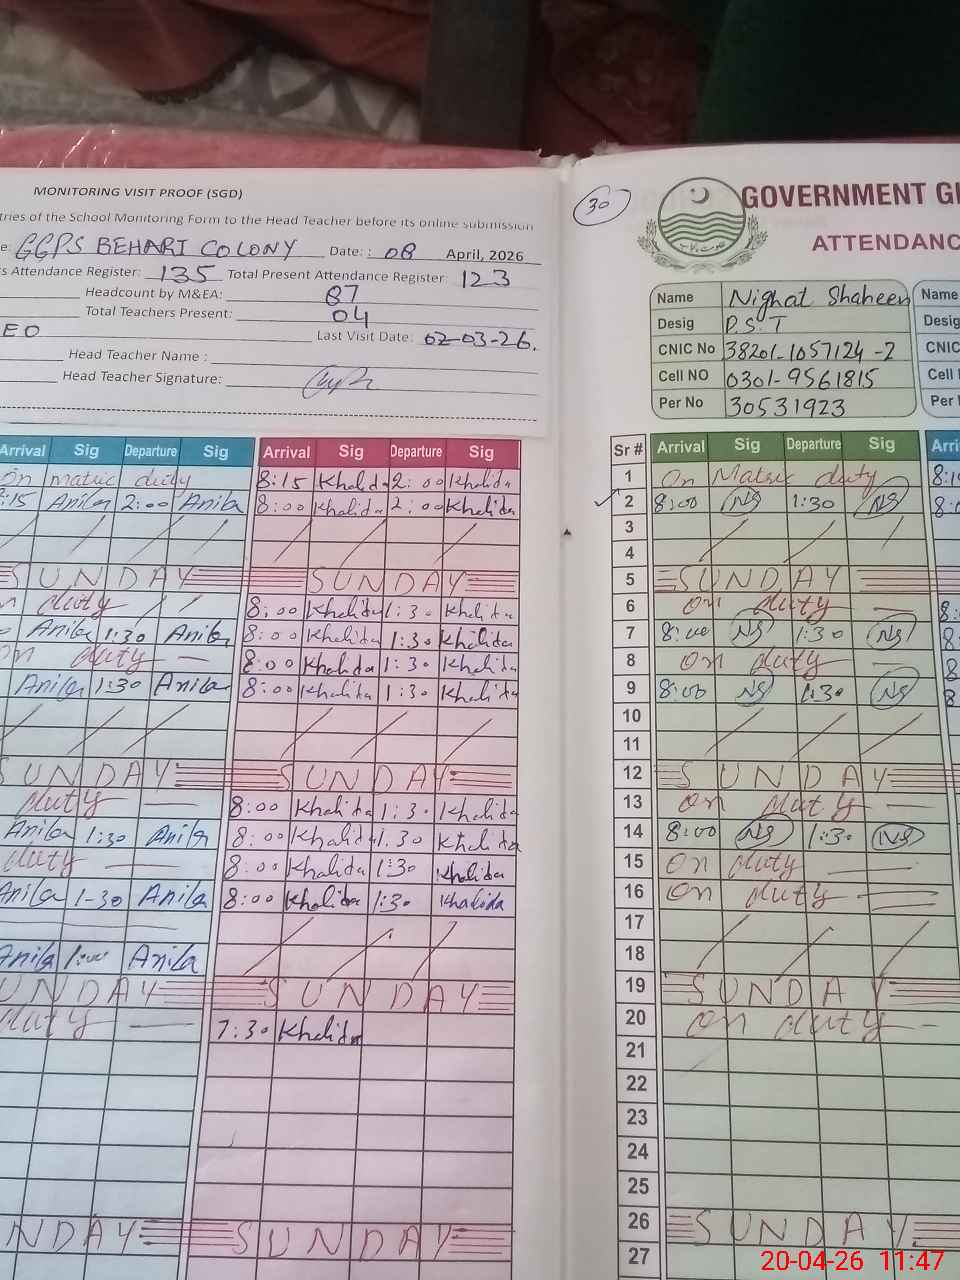 MONITORING VISIT PROOF (SGD)
tries of the School Monitoring Form to the Head Teacher before its online submission
e: GGPS BEHARI COLONY Date: : 08 April, 2026
s Attendance Register: 135 Total Present Attendance Register: 123
Headcount by M&EA: 87
Total Teachers Present: 04
EO Last Visit Date: 02-03-26.
Head Teacher Name :
Head Teacher Signature:
Arrival Sig Departure Sig Arrival Sig Departure Sig
On matric duty 8:15 Khalida 2:00 Khalida
8:15 Anila 2:00 Anila 8:00 Khalida 2:00 Khalida
SUNDAY SUNDAY
n duty 8:00 Khalida 1:30 Khalida
Anila 1:30 Anila 8:00 Khalida 1:30 Khalida
on duty 8:00 Khalida 1:30 Khalida
Anila 1:30 Anila 8:00 Khalida 1:30 Khalida
SUNDAY SUNDAY
duty 8:00 Khalida 1:30 Khalida
Anila 1:30 Anila 8:00 Khalida 1:30 Khalida
duty 8:00 Khalida 1:30 Khalida
Anila 1-30 Anila 8:00 Khalida 1:30 Khalida
Anila 1:00 Anila
UNDAY SUNDAY
duty 7:30 Khalida
NDAY SUNDAY
30
GOVERNMENT GI
ATTENDANC
Name Nighat Shaheen Name
Desig P.S.T Desig
CNIC No 38201-1057124-2 CNIC
Cell NO 0301-9561815 Cell
Per No 30531923 Per
Sr # Arrival Sig Departure Sig Arri
1 On Matric duty 8:1
2 8:00 NS 1:30 NS 8:0
3
4
5 SUNDAY
6 on duty 8:
7 8:00 NS 1:30 NS 8
8 on duty 8
9 8:00 NS 1:30 NS 8
10
11
12 SUNDAY
13 on duty
14 8:00 NS 1:30 NS
15 on duty
16 on duty
17
18
19 SUNDAY
20 on duty
21
22
23
24
25
26 SUNDAY
27
20-04-26 11:47